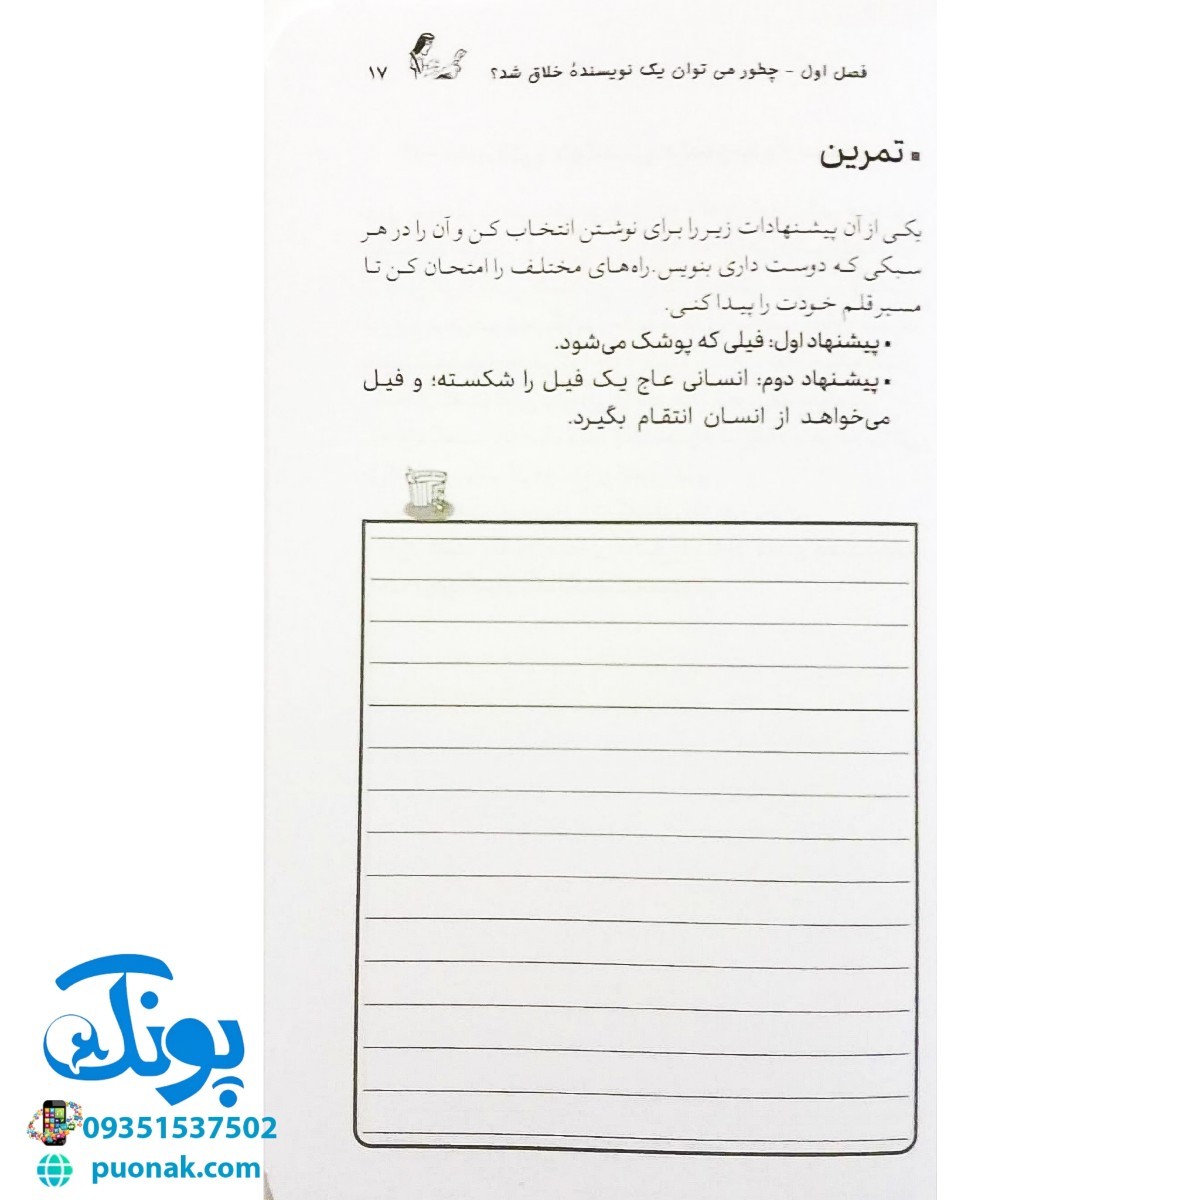 فصل اول - چطور می توان یک نویسندهٔ خلاق شد؟ ۱۷
▪ تمرین
یکی از آن پیشنهادات زیر را برای نوشتن انتخاب کن و آن را در هر
سبکی که دوست داری بنویس. راه‌های مختلف را امتحان کن تا
مسیر قلم خودت را پیدا کنی.
▪ پیشنهاد اول: فیلی که پوشک می‌شود.
▪ پیشنهاد دوم: انسانی عاج یک فیل را شکسته؛ و فیل
می‌خواهد از انسان انتقام بگیرد.
پونک
09351537502
puonak.com